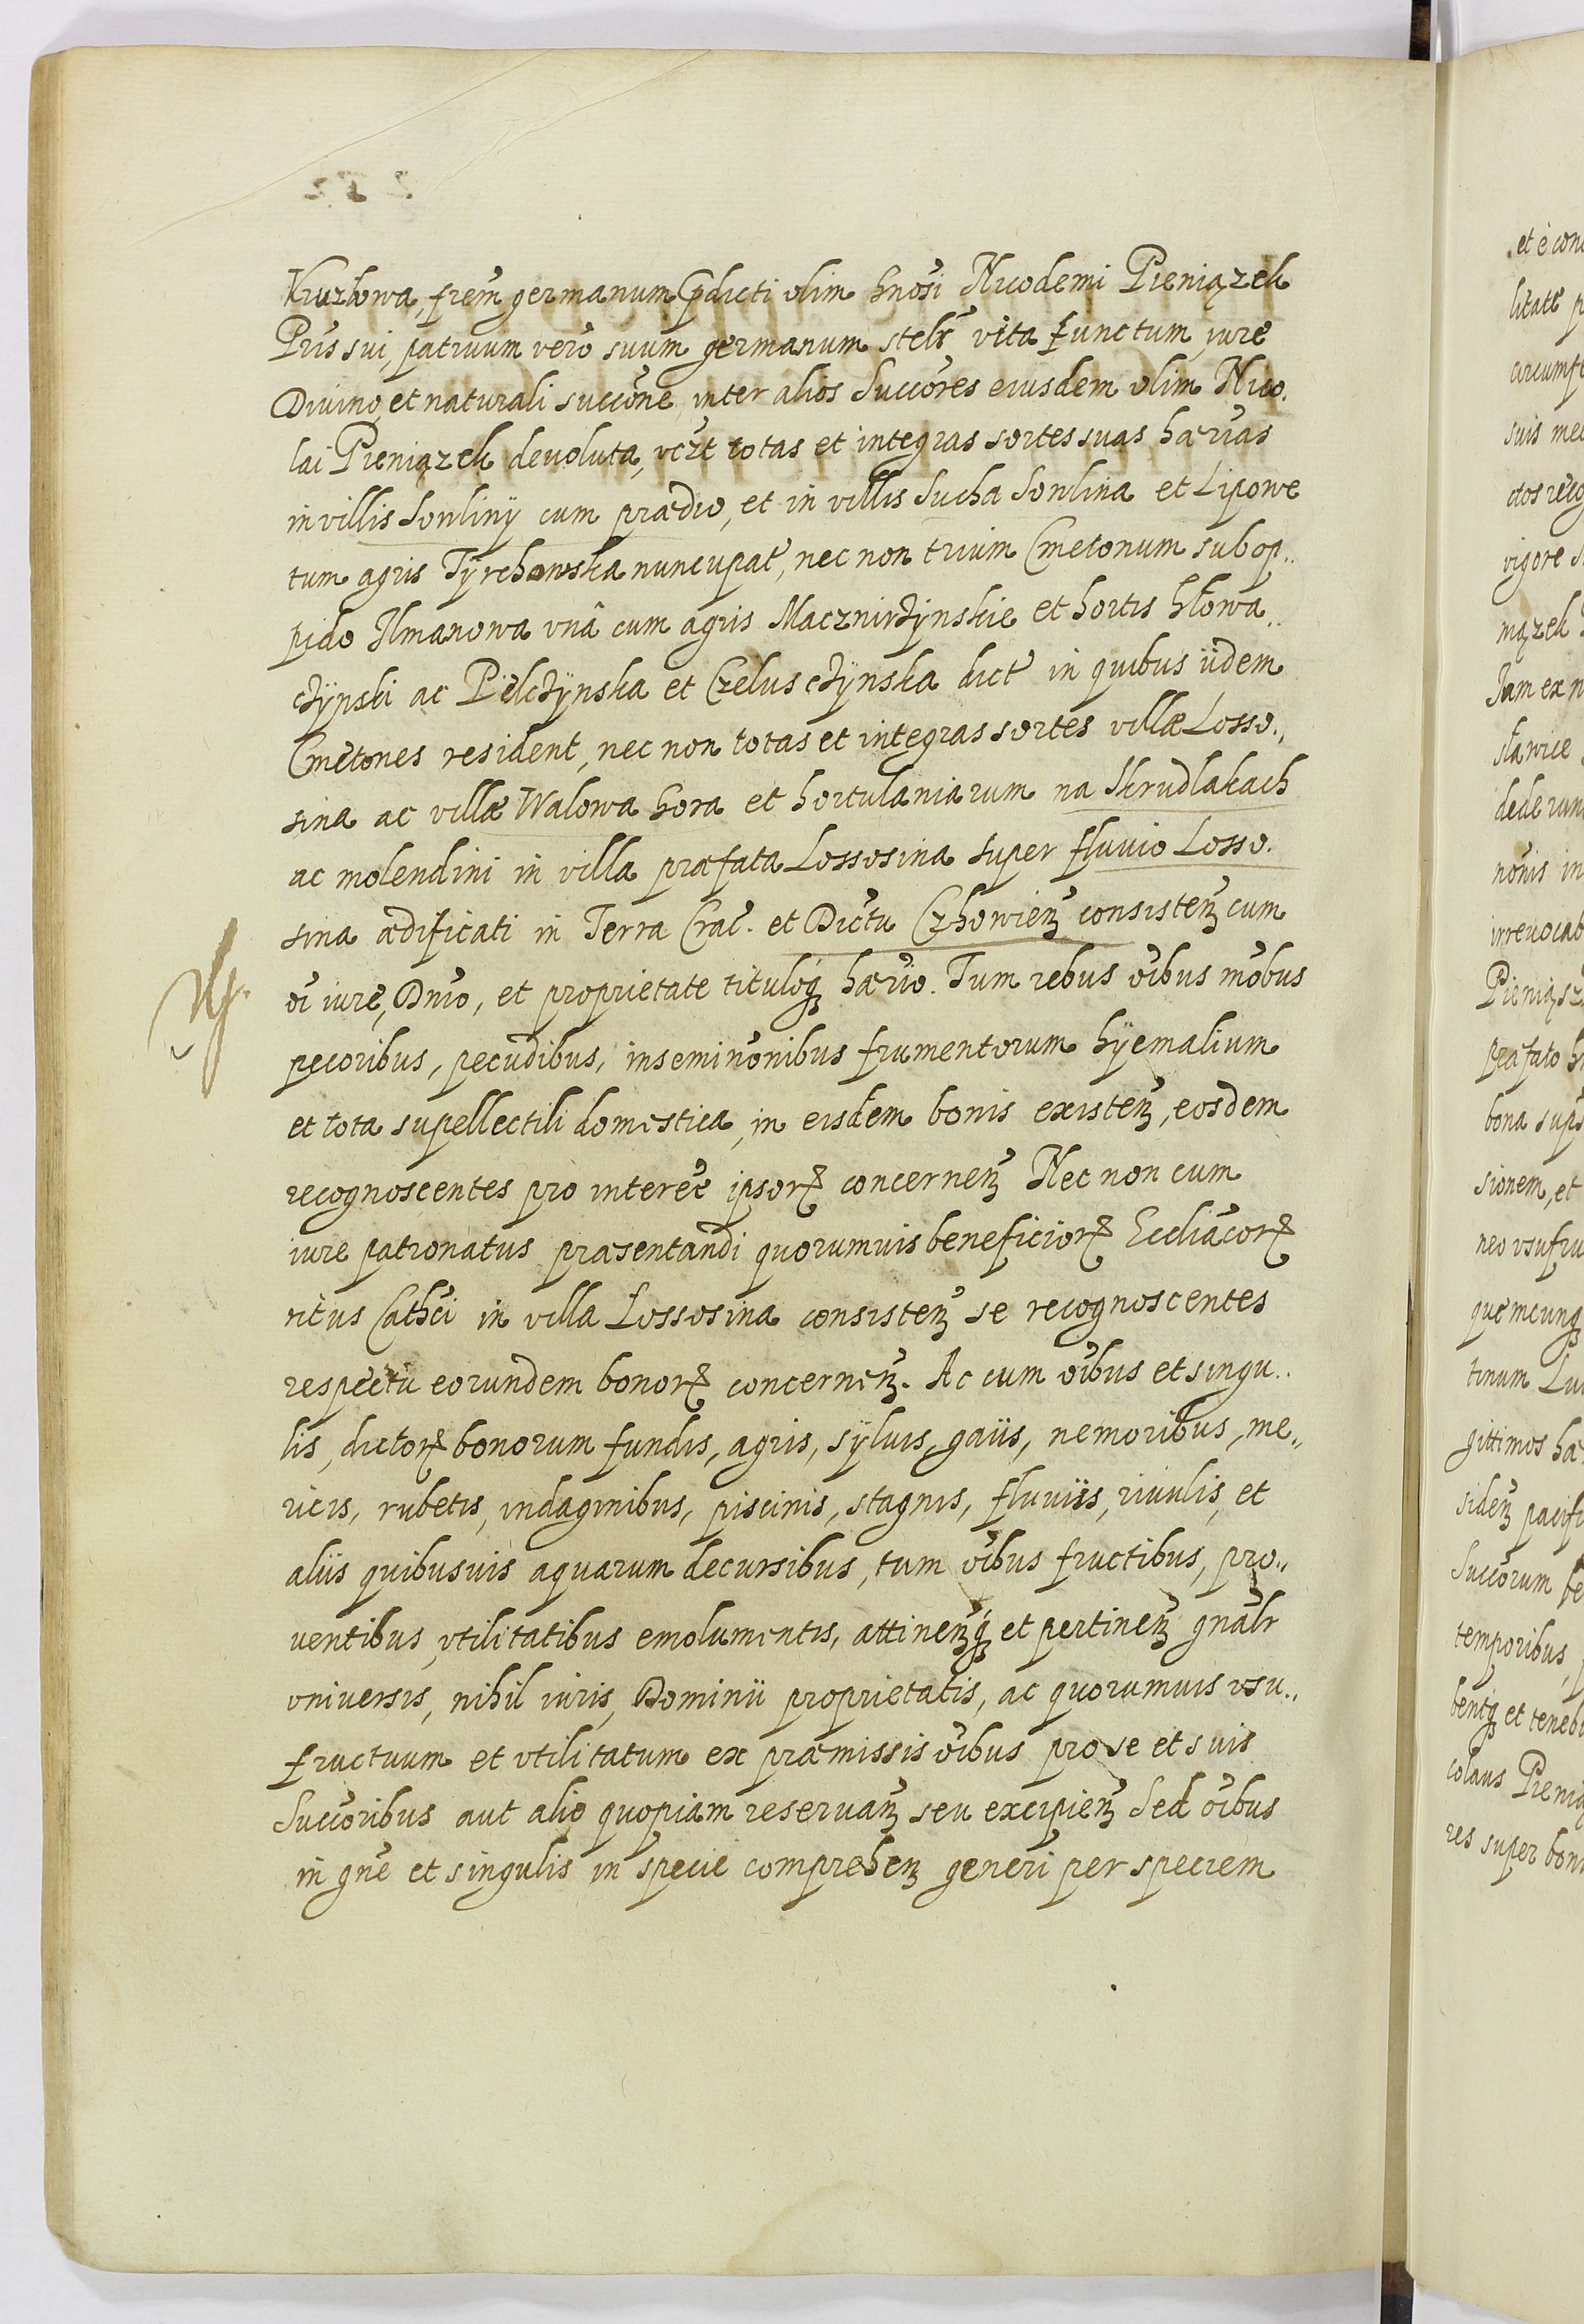 Kruzlowa, frem germanum pdicti olim Gnosi Nicodemi Pieniązek
Pris sui, patruum vero suum germanum sterlr vita functum, iure
Divino et naturali succone inter alios Succores eiusdem olim Nico.
lai Pieniązek devoluta, vczt totas et integras sortes suas haerias
in villis Sowliny cum praedio, et in villis Sucha Sowlina et Lipowe
tum agris Tyrchowska nuncupat, nec non trium Cmetonum sub op..
pido Ilmanowa vnâ cum agris et hortis
ac et dict in quibus iidem
Cmetones resident, nec non totas et integras sortes villae Losso.,
sina ac villae Walowa Gora et hortulaniarum na Skrudlakach
ac molendini in villa praefata Lossosina super fluuio Losso.
sina aedificati in Terra Crac. et Dictu Czhowien consisten cum
oi iure, Dnio, et proprietate tituloq haerio. Tum rebus oibus mobus
pecoribus, pecudibus, inseminonibus frumentorum hyemalium
et tota supellectili domestica, in eisdem bonis existen, eosdem
recognoscentes pro interee ipsor concernen Nec non cum
iure patronatus praesentandi quorumuis beneficior Eccliacor
ritus Cathci in villa Lossosina consisten se recognoscentes
respectu eorundem bonor concernen. Ac cum oibus et singu..
lis, dictor bonorum fundis, agris, syluis, gaiis, nemoribus, me,,
ricis, rubetis, indaginibus, piscinis, stagnis, fluuiis, riuulis, et
aliis quibusuis aquarum decursibus, tum oibus fructibus, pro,,
uentibus, vtilitatibus emolumentis, attinenq et pertinen gnalr
vniuersis, nihil iuris, Dominii proprietatis, ac quorumuis vsu..
fructuum et vtilitatum ex praemissis oibus pro se et suis
Succoribus aut alio quopiam reseruan seu excipien Sed oibus
in gne et singulis in specie comprehen generi per speciem